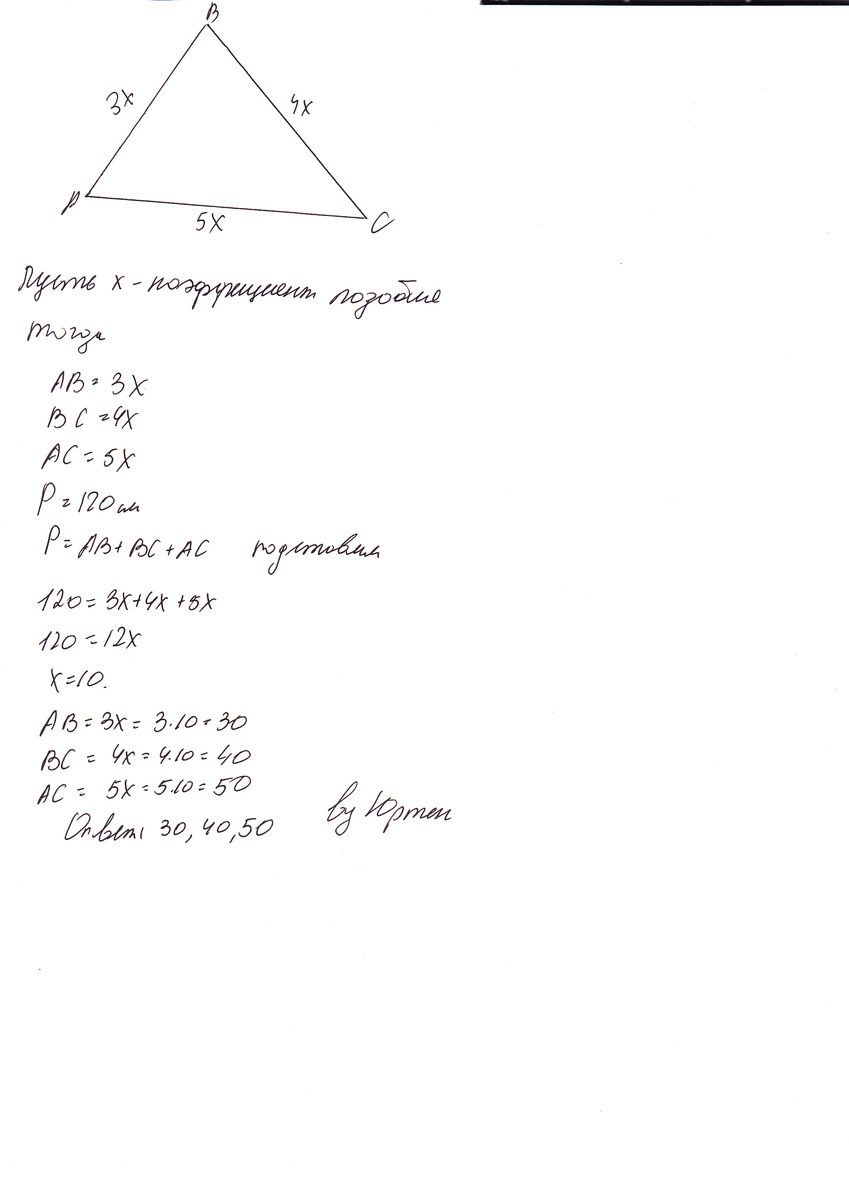 B
3x
4x
A
5x
C
Пусть x - коэффициент подобия
тогда
AB = 3x
BC = 4x
AC = 5x
P = 120 см
P = AB + BC + AC подставим
120 = 3x + 4x + 5x
120 = 12x
x = 10.
AB = 3x = 3·10 = 30
BC = 4x = 4·10 = 40
AC = 5x = 5·10 = 50
Ответ: 30, 40, 50 by Юртен